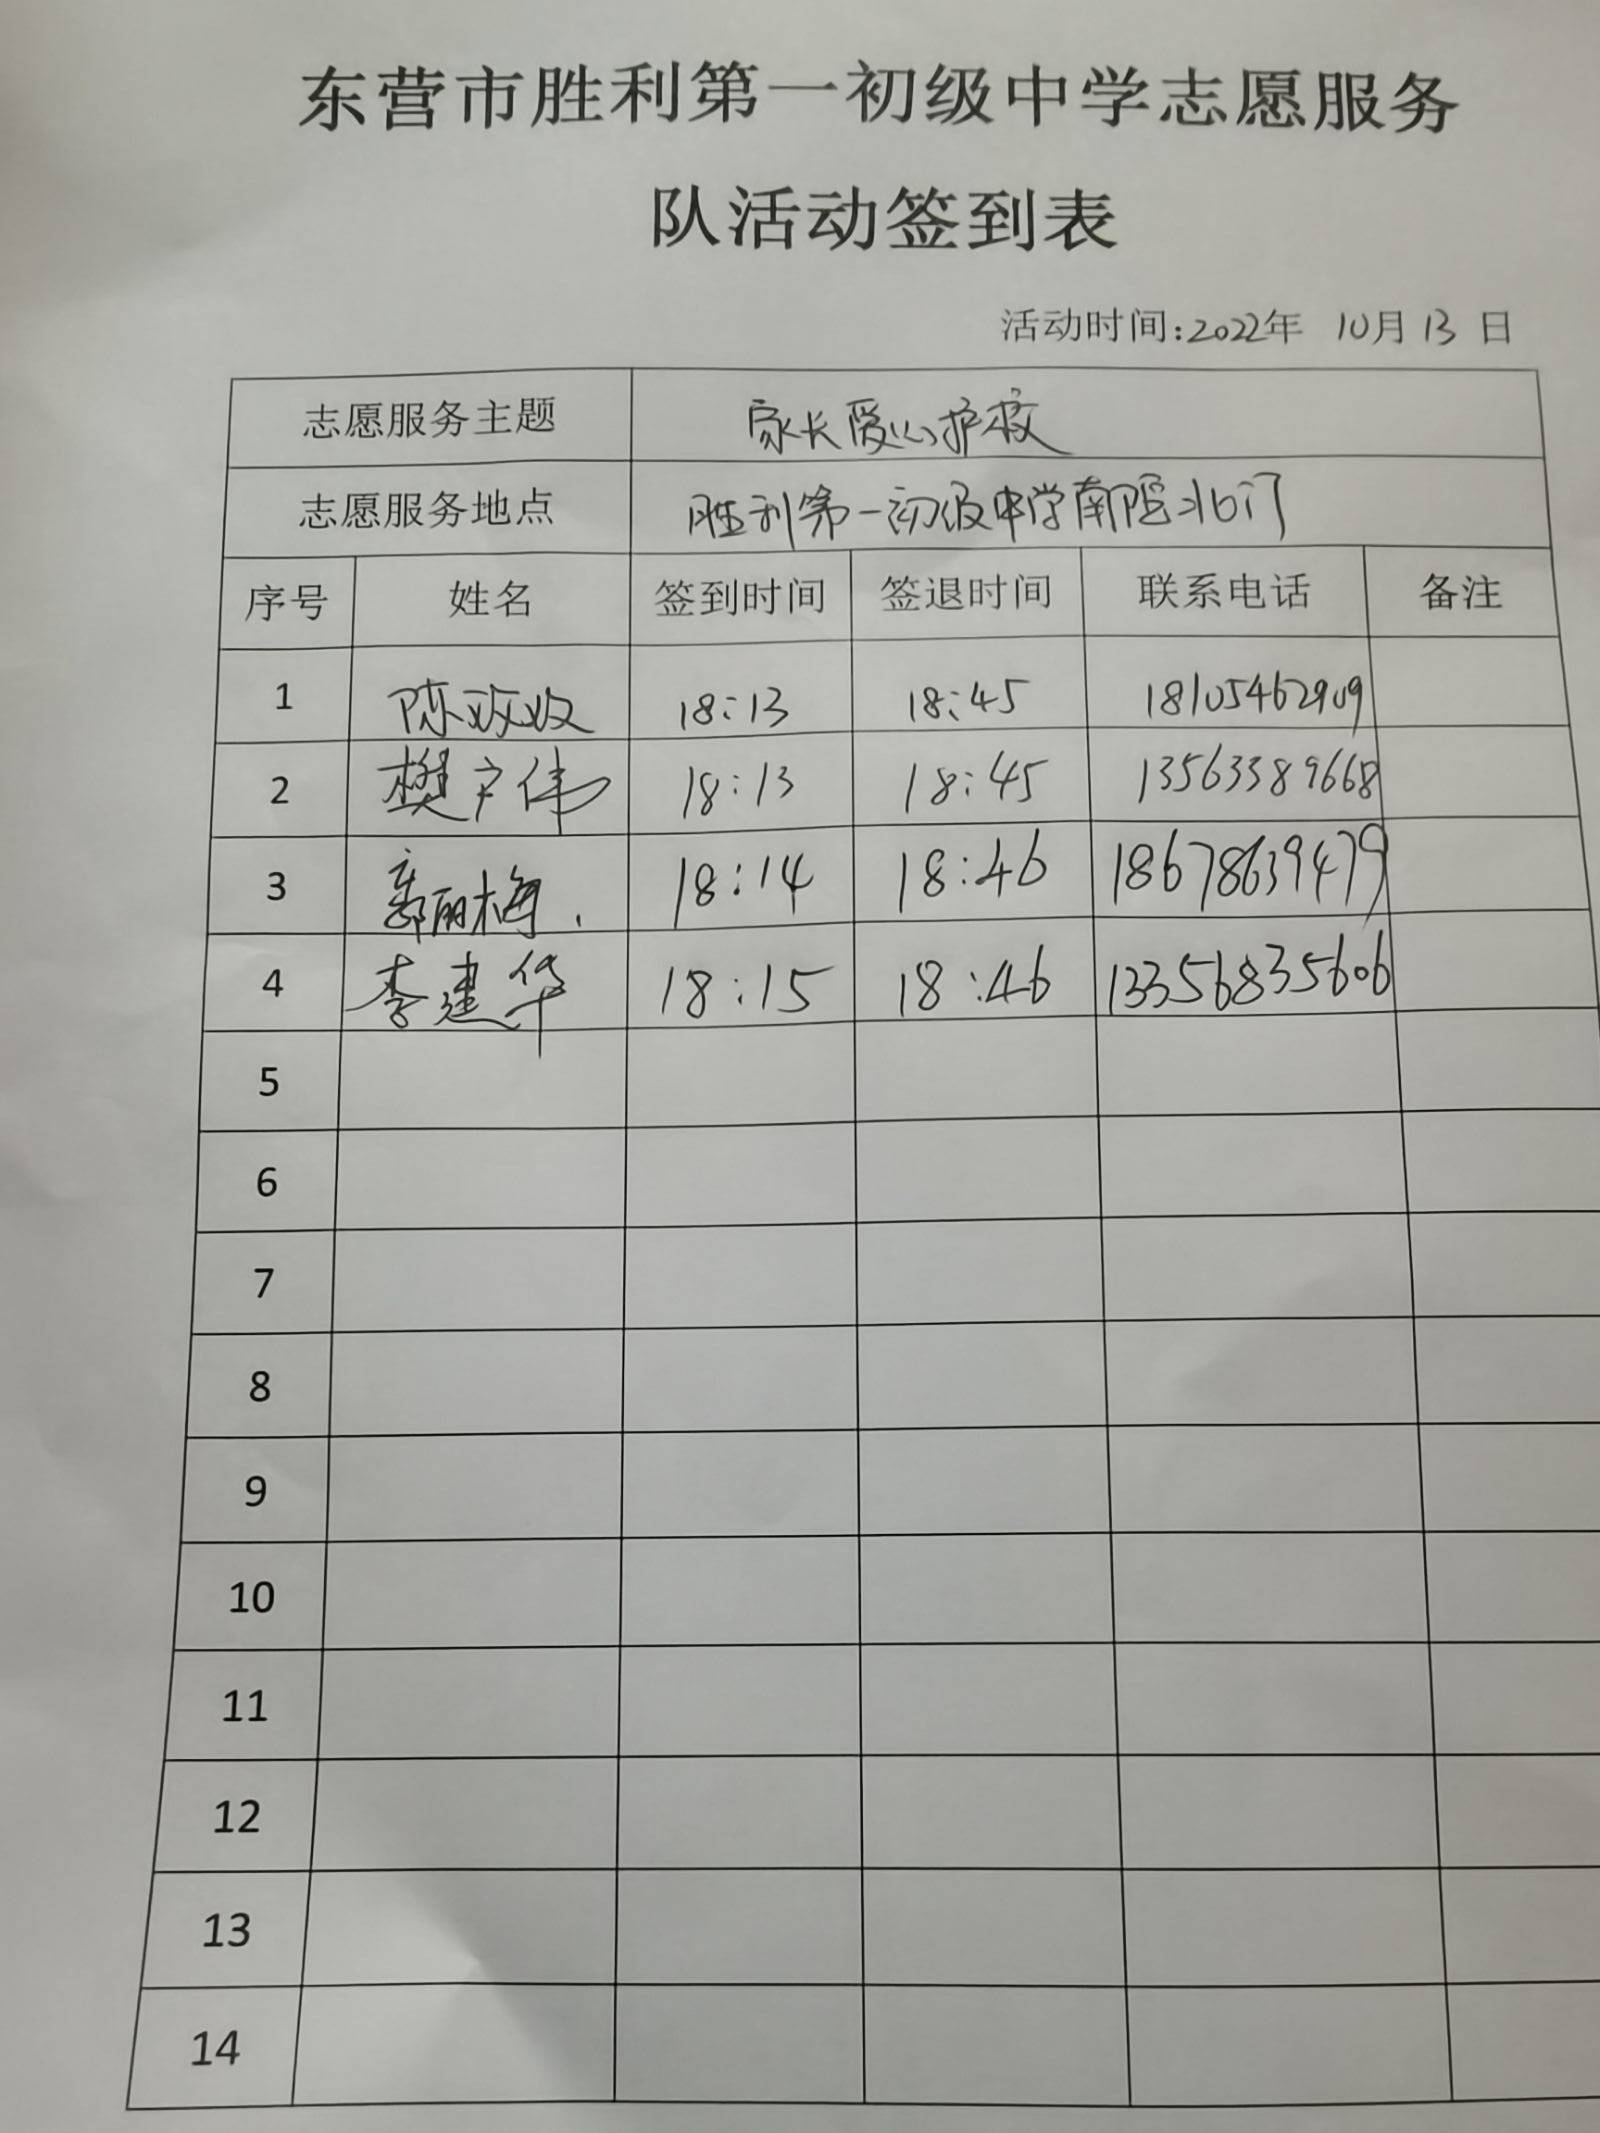 东营市胜利第一初级中学志愿服务
队活动签到表
活动时间:2022年 10月13日
志愿服务主题 家长爱心护校
志愿服务地点 胜利第一初级中学南院北门
序号 姓名 签到时间 签退时间 联系电话 备注
1 陈 18:13 18:45 18105462909
2 樊广伟 18:13 18:45 13563389668
3 郭丽梅 18:14 18:46 18678639479
4 李建华 18:15 18:46 13356835606
5
6
7
8
9
10
11
12
13
14